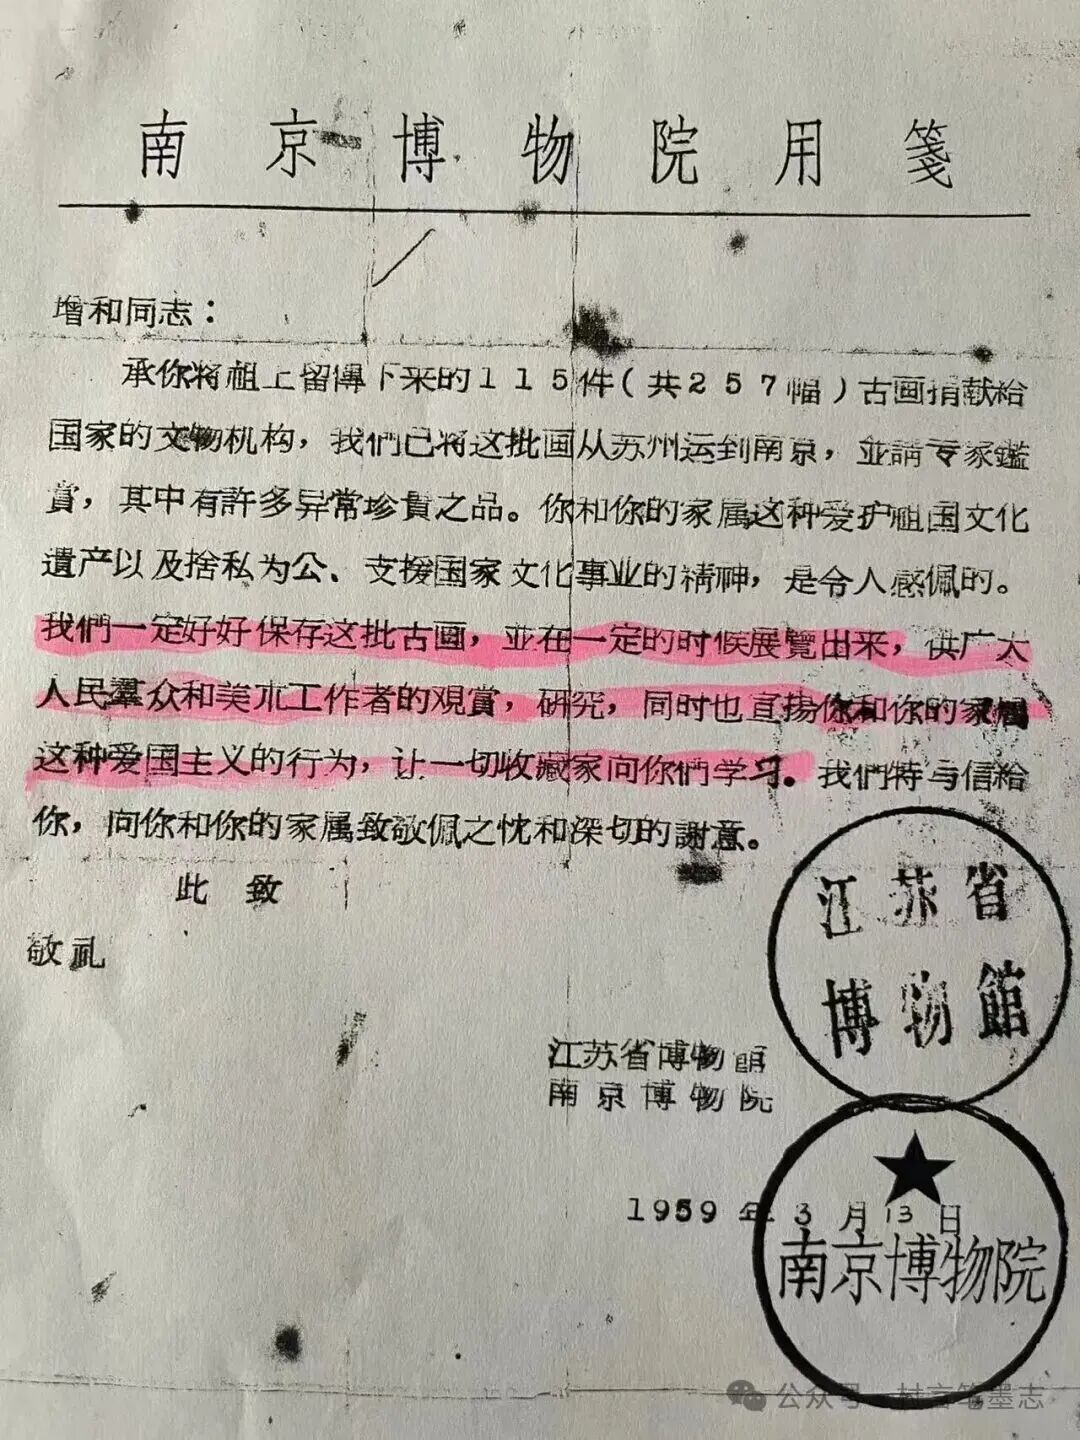 南京博物院用箋
增和同志：
承你将祖上留傳下来的115件（共257幅）古画捐献給
国家的文物机构，我們已将这批画从苏州运到南京，並請专家鑑
賞，其中有許多异常珍貴之品。你和你的家属这种爱护祖国文化
遺产以及捨私为公、支援国家文化事业的精神，是令人感佩的。
我們一定好好保存这批古画，並在一定的时候展覽出来，供广大
人民羣众和美朮工作者的观賞，研究，同时也宣揚你和你的家属
这种爱国主义的行为，让一切收藏家向你們学习。我們特与信給
你，向你和你的家属致敬佩之忱和深切的謝意。
此致
敬礼
江苏省
博物館
江苏省博物館
南京博物院
1959年3月13日
南京博物院
公众号 村言笔墨志